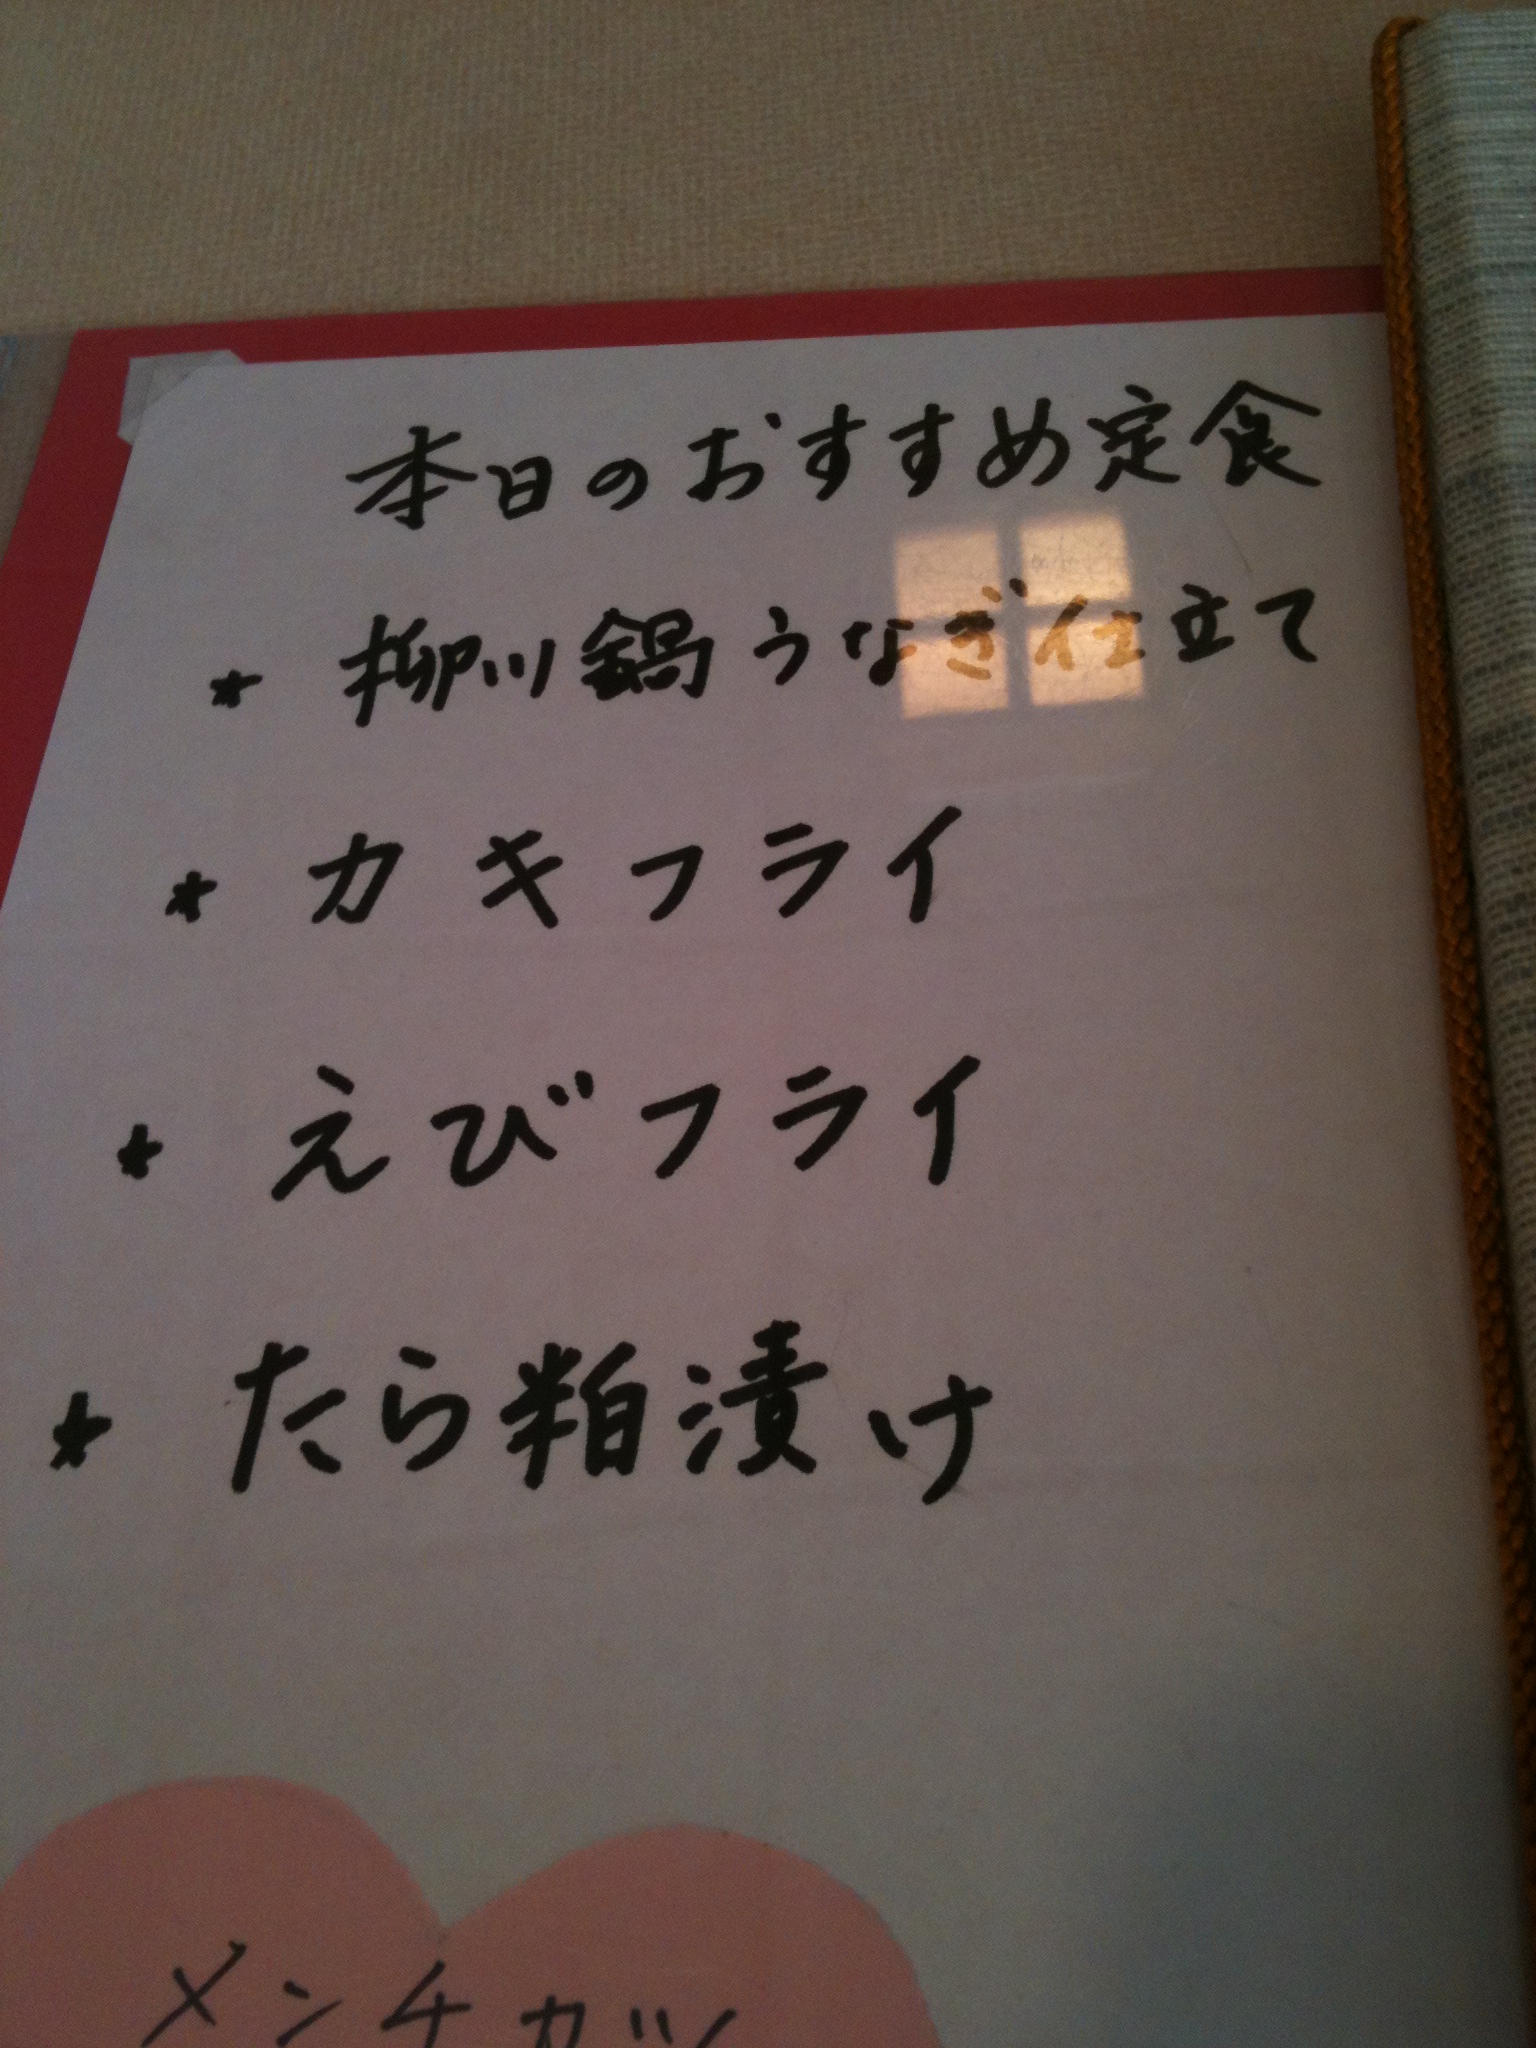 本日のおすすめ定食
* 柳川鍋うなぎ仕立て
* カキフライ
* えびフライ
* たら粕漬け
メンチカツ